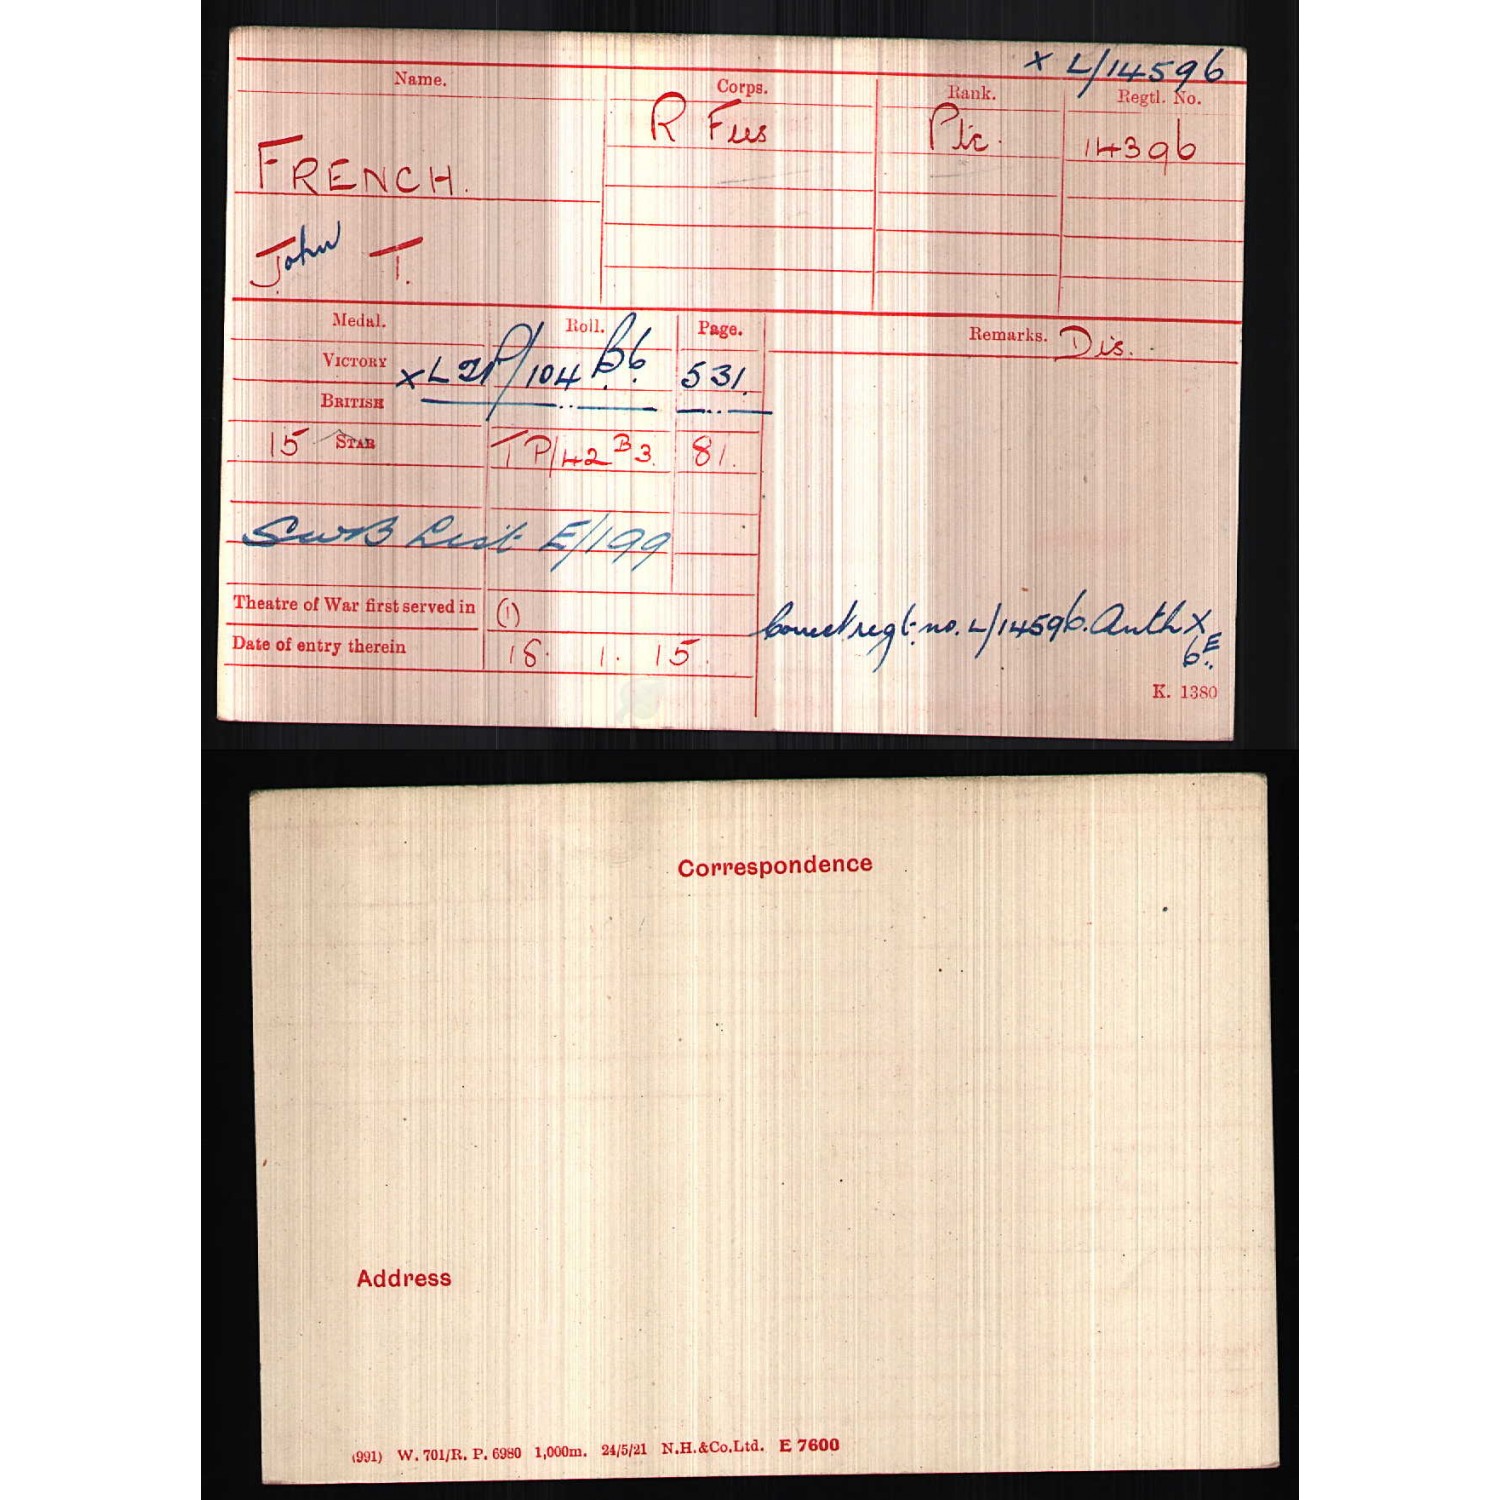 x L/14596
Name. Corps. Rank. Regtl. No.
R Fus Pte. 14396
FRENCH.
John T.
Medal. Roll. Page. Remarks. Dis.
VICTORY x L 21P/104 B6. 531.
BRITISH
15 STAR TP/42 B3. 81.
SWB List E/199
Theatre of War first served in (1)
Date of entry therein 18. 1. 15.
Correct regt. no. L/14596. Auth X
6E
K. 1380
Correspondence
Address
(991) W. 701/R. P. 6980 1,000m. 24/5/21 N.H.&Co.Ltd. E 7600